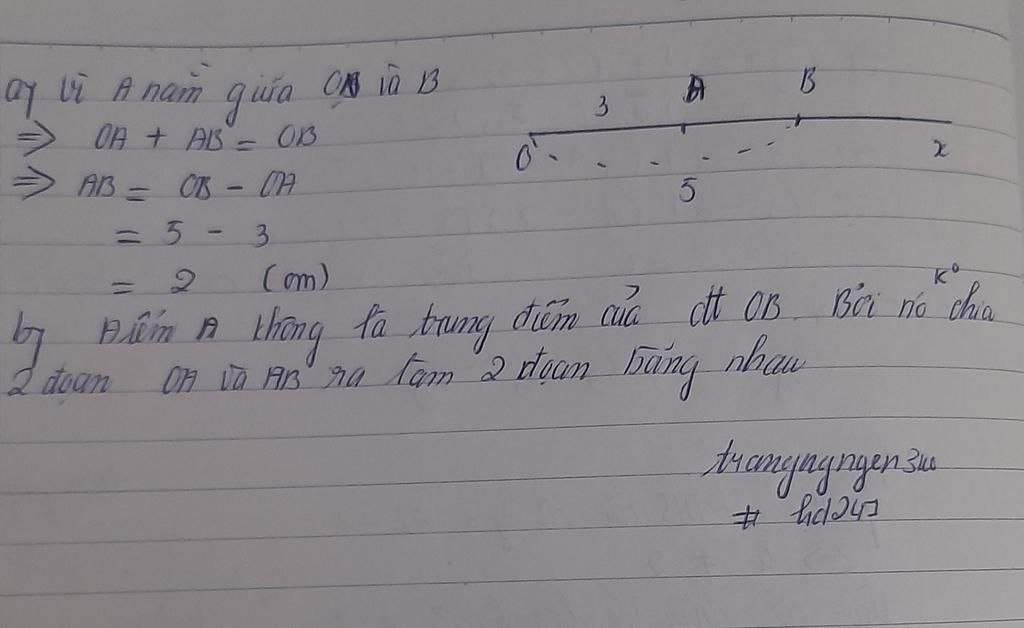 a, Vì A nằm giữa O và B
=> OA + AB = OB
=> AB = OB - OA
= 5 - 3
= 2 (cm)
3 A B
O x
5
b, Điểm A không là trung điểm của đt OB. Bởi nó k° chia
2 đoạn OA và AB ra làm 2 đoạn bằng nhau
# hd247